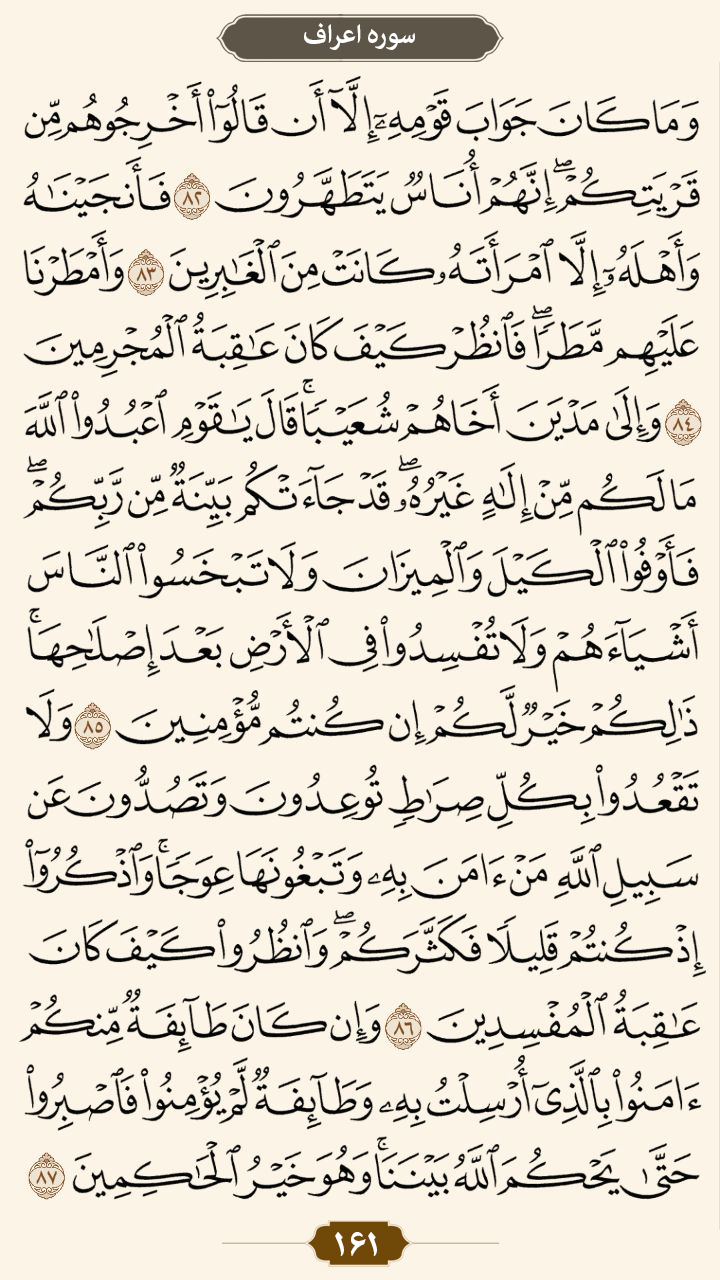 سوره اعراف
وَمَا كَانَ جَوَابَ قَوْمِهِۦٓ إِلَّآ أَن قَالُوٓا۟ أَخْرِجُوهُم مِّن
قَرْيَتِكُمْ ۖ إِنَّهُمْ أُنَاسٌ يَتَطَهَّرُونَ ٨٢ فَأَنجَيْنَٰهُ
وَأَهْلَهُۥٓ إِلَّا ٱمْرَأَتَهُۥ كَانَتْ مِنَ ٱلْغَٰبِرِينَ ٨٣ وَأَمْطَرْنَا
عَلَيْهِم مَّطَرًا ۖ فَٱنظُرْ كَيْفَ كَانَ عَٰقِبَةُ ٱلْمُجْرِمِينَ
٨٤ وَإِلَىٰ مَدْيَنَ أَخَاهُمْ شُعَيْبًا ۗ قَالَ يَٰقَوْمِ ٱعْبُدُوا۟ ٱللَّهَ
مَا لَكُم مِّنْ إِلَٰهٍ غَيْرُهُۥ ۖ قَدْ جَآءَتْكُم بَيِّنَةٌ مِّن رَّبِّكُمْ ۖ
فَأَوْفُوا۟ ٱلْكَيْلَ وَٱلْمِيزَانَ وَلَا تَبْخَسُوا۟ ٱلنَّاسَ
أَشْيَآءَهُمْ وَلَا تُفْسِدُوا۟ فِى ٱلْأَرْضِ بَعْدَ إِصْلَٰحِهَا ۚ
ذَٰلِكُمْ خَيْرٌ لَّكُمْ إِن كُنتُم مُّؤْمِنِينَ ٨٥ وَلَا
تَقْعُدُوا۟ بِكُلِّ صِرَٰطٍ تُوعِدُونَ وَتَصُدُّونَ عَن
سَبِيلِ ٱللَّهِ مَنْ ءَامَنَ بِهِۦ وَتَبْغُونَهَا عِوَجًا ۚ وَٱذْكُرُوٓا۟
إِذْ كُنتُمْ قَلِيلًا فَكَثَّرَكُمْ ۖ وَٱنظُرُوا۟ كَيْفَ كَانَ
عَٰقِبَةُ ٱلْمُفْسِدِينَ ٨٦ وَإِن كَانَ طَآئِفَةٌ مِّنكُمْ
ءَامَنُوا۟ بِٱلَّذِىٓ أُرْسِلْتُ بِهِۦ وَطَآئِفَةٌ لَّمْ يُؤْمِنُوا۟ فَٱصْبِرُوا۟
حَتَّىٰ يَحْكُمَ ٱللَّهُ بَيْنَنَا ۚ وَهُوَ خَيْرُ ٱلْحَٰكِمِينَ ٨٧
۱۶۱